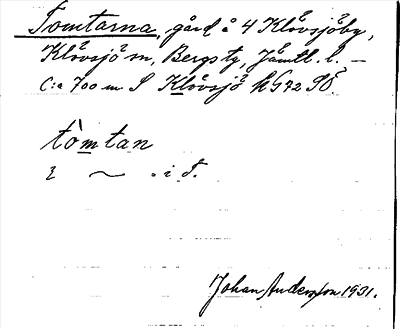 Tomtarna, gård å 4 Klövsjöby,
Klövsjö sn, Bergs tg, Jämtl. l. —
C:a 700 m S Klövsjö k G 72 SÖ.
tòmtan
ɩ ~ . i S.
Johan Anderson 1931.